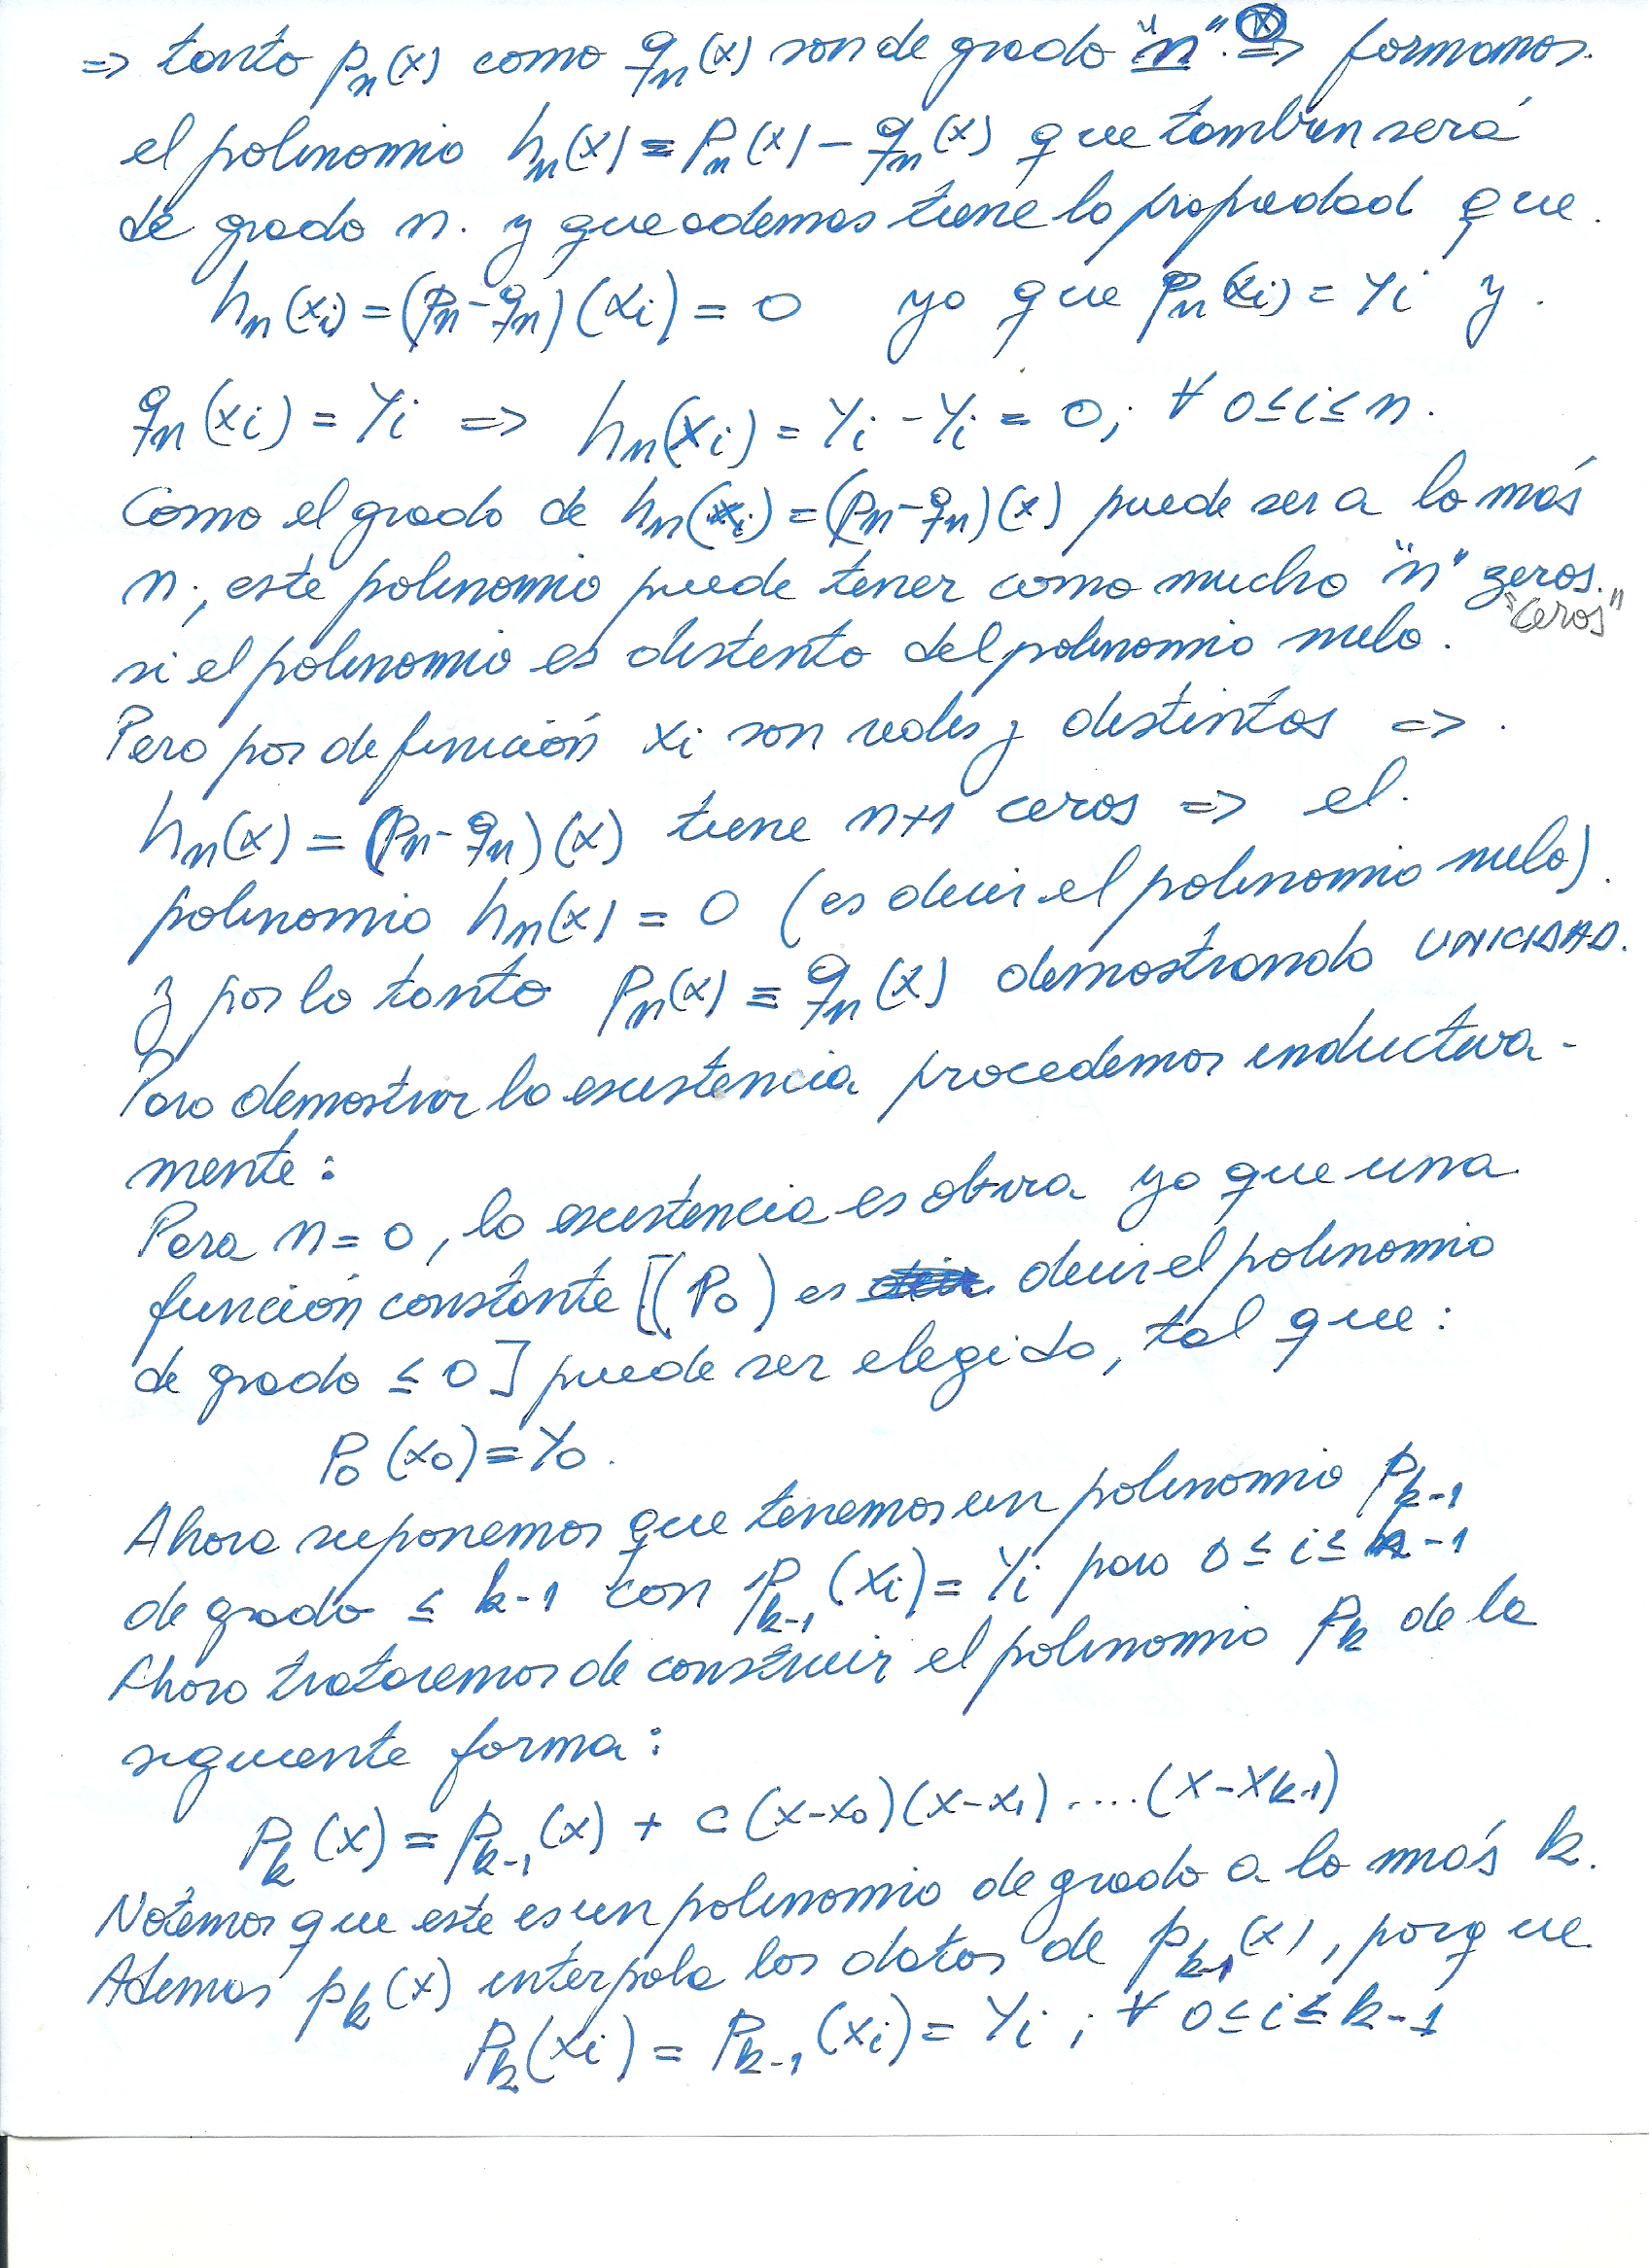 => tanto pₙ(x) como qₙ(x) son de grado "n". ⊗ => formamos.
el polinomio hₙ(x) = pₙ(x) - qₙ(x) que tambien será
de grado n. y que ademas tiene la propiedad que.
hₙ(xᵢ) = (pₙ - qₙ)(xᵢ) = 0 ya que pₙ(xᵢ) = yᵢ y.
qₙ(xᵢ) = yᵢ => hₙ(xᵢ) = yᵢ - yᵢ = 0; ∀ 0≤i≤n.
Como el grado de hₙ(x) = (pₙ - qₙ)(x) puede ser a lo más
n; este polinomio puede tener como mucho "n" zeros.
"ceros"
si el polinomio es distinto del polinomio nulo.
Pero por definición xᵢ son reales y distintos => .
hₙ(x) = (pₙ - qₙ)(x) tiene n+1 ceros => el.
polinomio hₙ(x) = 0 (es decir el polinomio nulo).
y por lo tanto pₙ(x) ≡ qₙ(x) demostrando UNICIDAD.
Para demostrar la existencia procedemos inductiva-
mente:
Para n = 0, la existencia es obvia ya que una
función constante [(P₀) es decir el polinomio
de grado ≤ 0] puede ser elegido, tal que:
P₀(x₀) = y₀.
Ahora suponemos que tenemos un polinomio Pₖ₋₁
de grado ≤ k-1 con Pₖ₋₁(xᵢ) = yᵢ para 0 ≤ i ≤ k-1
Ahora trataremos de construir el polinomio Pₖ de la
siguiente forma:
Pₖ(x) = Pₖ₋₁(x) + c(x-x₀)(x-x₁)....(x-xₖ₋₁)
Notemos que este es un polinomio de grado a lo más k.
Ademas pₖ(x) interpola los datos de pₖ₋₁(x), porque
Pₖ(xᵢ) = Pₖ₋₁(xᵢ) = yᵢ; ∀ 0≤i≤k-1